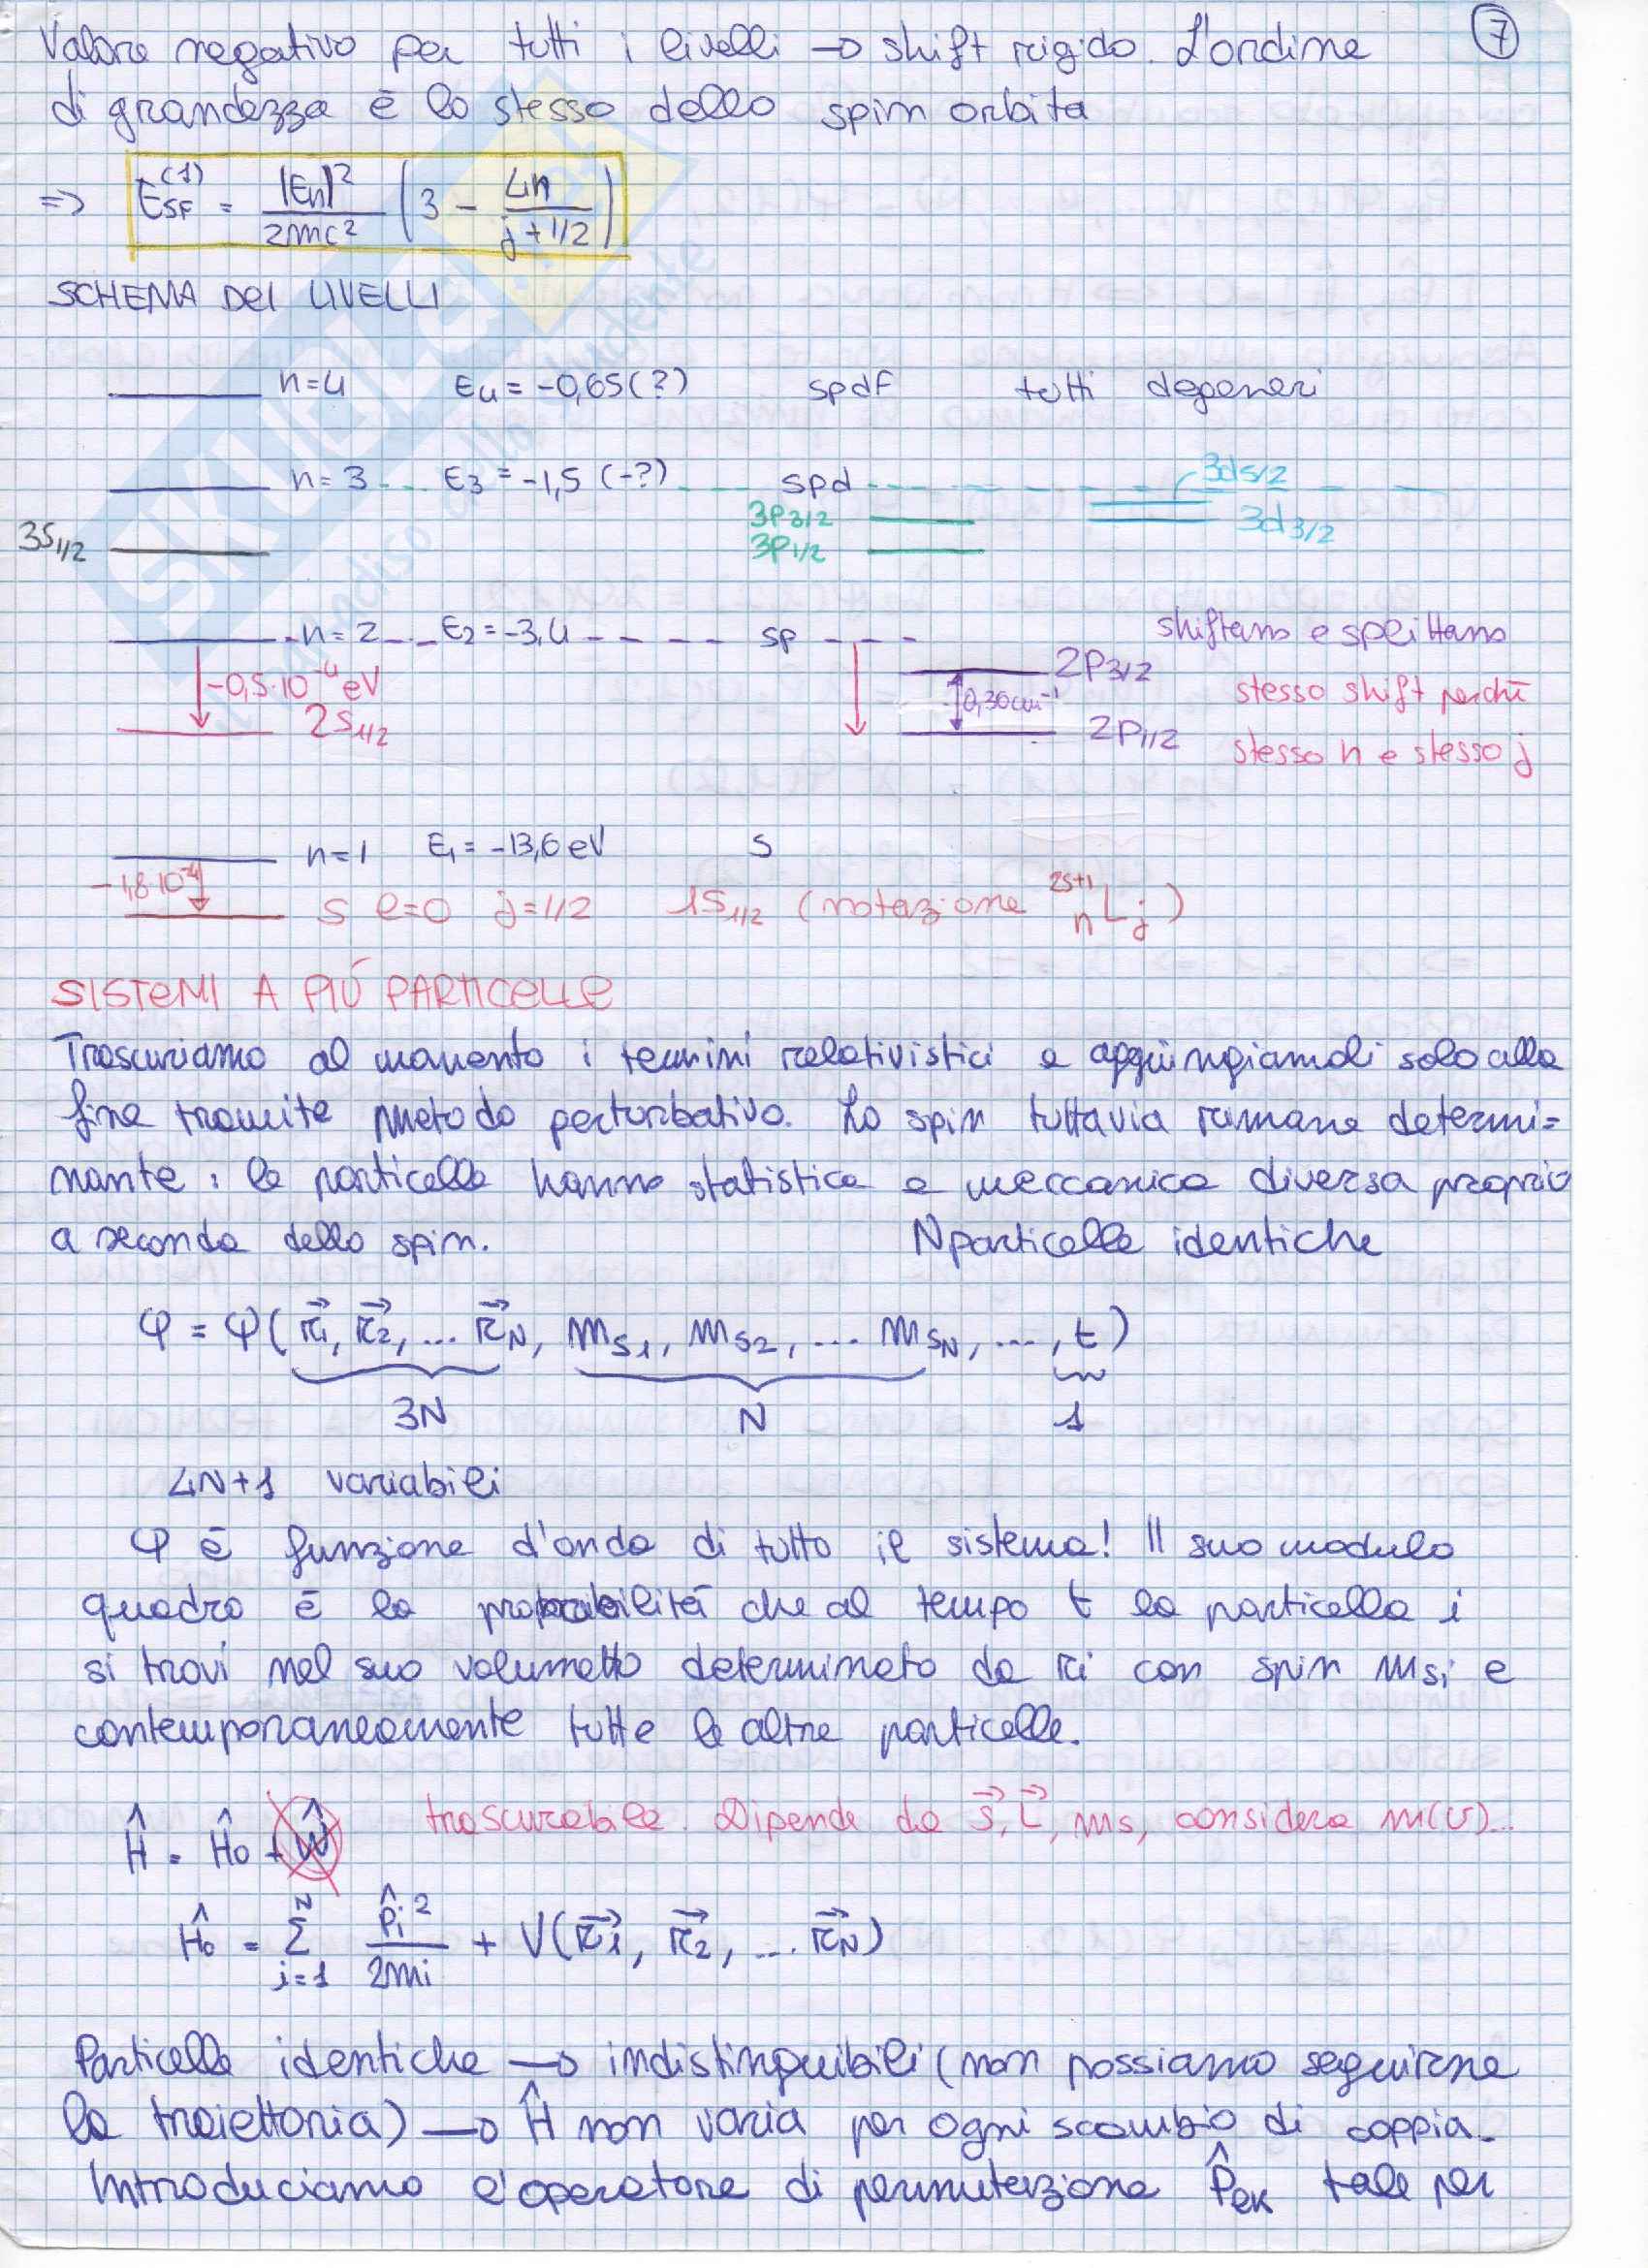 Valore negativo per tutti i livelli → shift rigido. L'ordine ⑦
di grandezza è lo stesso dello spin orbita
=> E_SF^(1) = |En|² / 2mc² (3 - 4n / j+1/2)
SCHEMA DEI LIVELLI
n=4 E4 = -0,65(?) spdf tutti degeneri
n=3 E3 = -1,5 (-?) spd 3d5/2
3P3/2 3d3/2
3S1/2 3P1/2
n=2 E2 = -3,4 sp shiftano e splittano
2P3/2
-0,5·10^-4 eV 0,30cm^-1 stesso shift perché
2S1/2 2P1/2 stesso n e stesso j
n=1 E1 = -13,6 eV s
-1,8·10^-4 s l=0 j=1/2 1S1/2 (notazione n^2s+1 L_j)
SISTEMI A PIÚ PARTICELLE
Trascuriamo al momento i termini relativistici e aggiungiamoli solo alla
fine tramite metodo perturbativo. Lo spin tuttavia rimane determi=
nante: le particelle hanno statistica e meccanica diversa proprio
a seconda dello spin. N particelle identiche
φ = φ(r⃗1, r⃗2, ... r⃗N, ms1, ms2, ... msN, ..., t)
3N N 1
4N+1 variabili
φ è funzione d'onda di tutto il sistema! Il suo modulo
quadro è la probabilità che al tempo t la particella i
si trovi nel suo volumetto determinato da ri con spin msi e
contemporaneamente tutte le altre particelle.
Ĥ = Ĥo + Ŵ trascurabile. Dipende da s⃗, L⃗, ms, considera m(v)...
Ĥo = Σ_i=1^N p̂i² / 2mi + V(r⃗1, r⃗2, ... r⃗N)
Particelle identiche → indistinguibili (non possiamo seguirne
la traiettoria) → Ĥ non varia per ogni scambio di coppia.
Introduciamo l'operatore di permutazione P̂ek tale per
SKUOLA.net
il paradiso dello studente